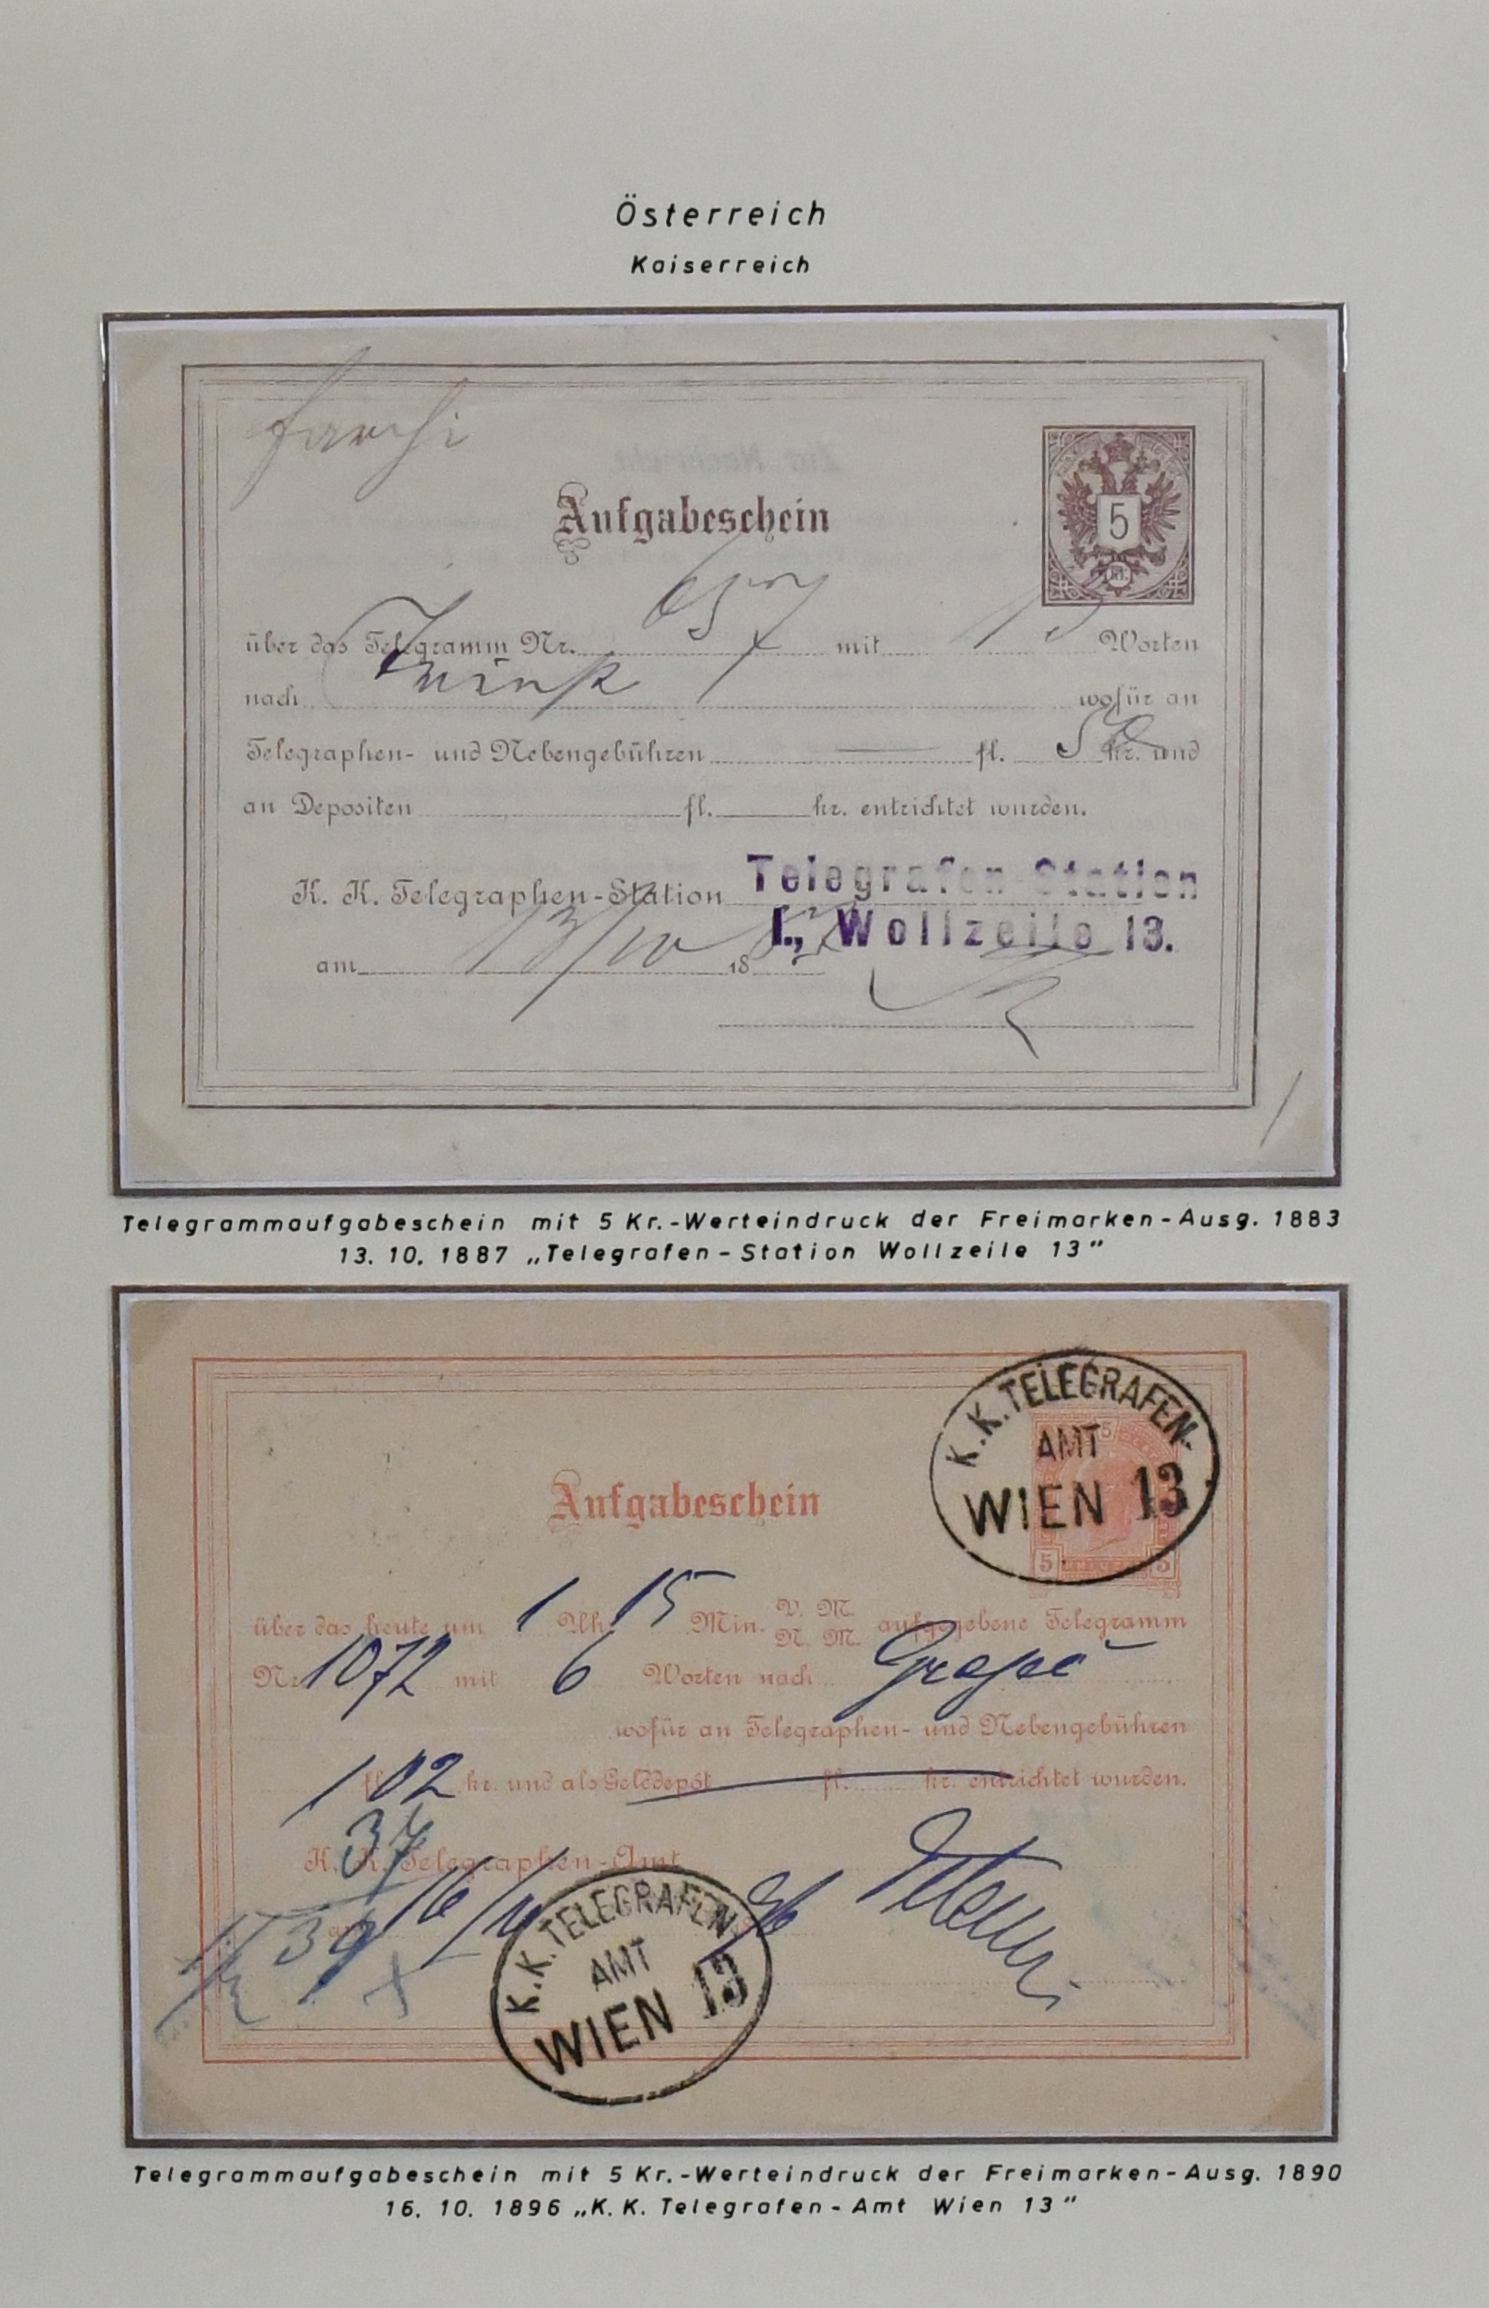 Österreich
Kaiserreich
Aufgabeschein
5
kr.
über das Telegramm Nr. 657 mit 13 Worten
nach wofür an
Telegraphen- und Nebengebühren fl. 58 kr. und
an Depositen fl. kr. entrichtet wurden.
K. K. Telegraphen-Station Telegrafen-Station
I., Wollzeile 13.
am 13/10 1887
Telegrammaufgabeschein mit 5 Kr.-Werteindruck der Freimarken-Ausg. 1883
13. 10. 1887 „Telegrafen-Station Wollzeile 13"
K.K. TELEGRAFEN-
AMT
WIEN 13
5 5
Aufgabeschein
über das heute um 1 Uhr 15 Min. V. M. N. M. aufgegebene Telegramm
Nr. 1072 mit 6 Worten nach
wofür an Telegraphen- und Nebengebühren
1 fl. 02 kr. und als Gelddepôt fl. kr. entrichtet wurden.
37
K. K. Telegraphen-Amt
39
am 16/10 96
K.K. TELEGRAFEN-
AMT
WIEN 13
Telegrammaufgabeschein mit 5 Kr.-Werteindruck der Freimarken-Ausg. 1890
16. 10. 1896 „K.K. Telegrafen-Amt Wien 13"